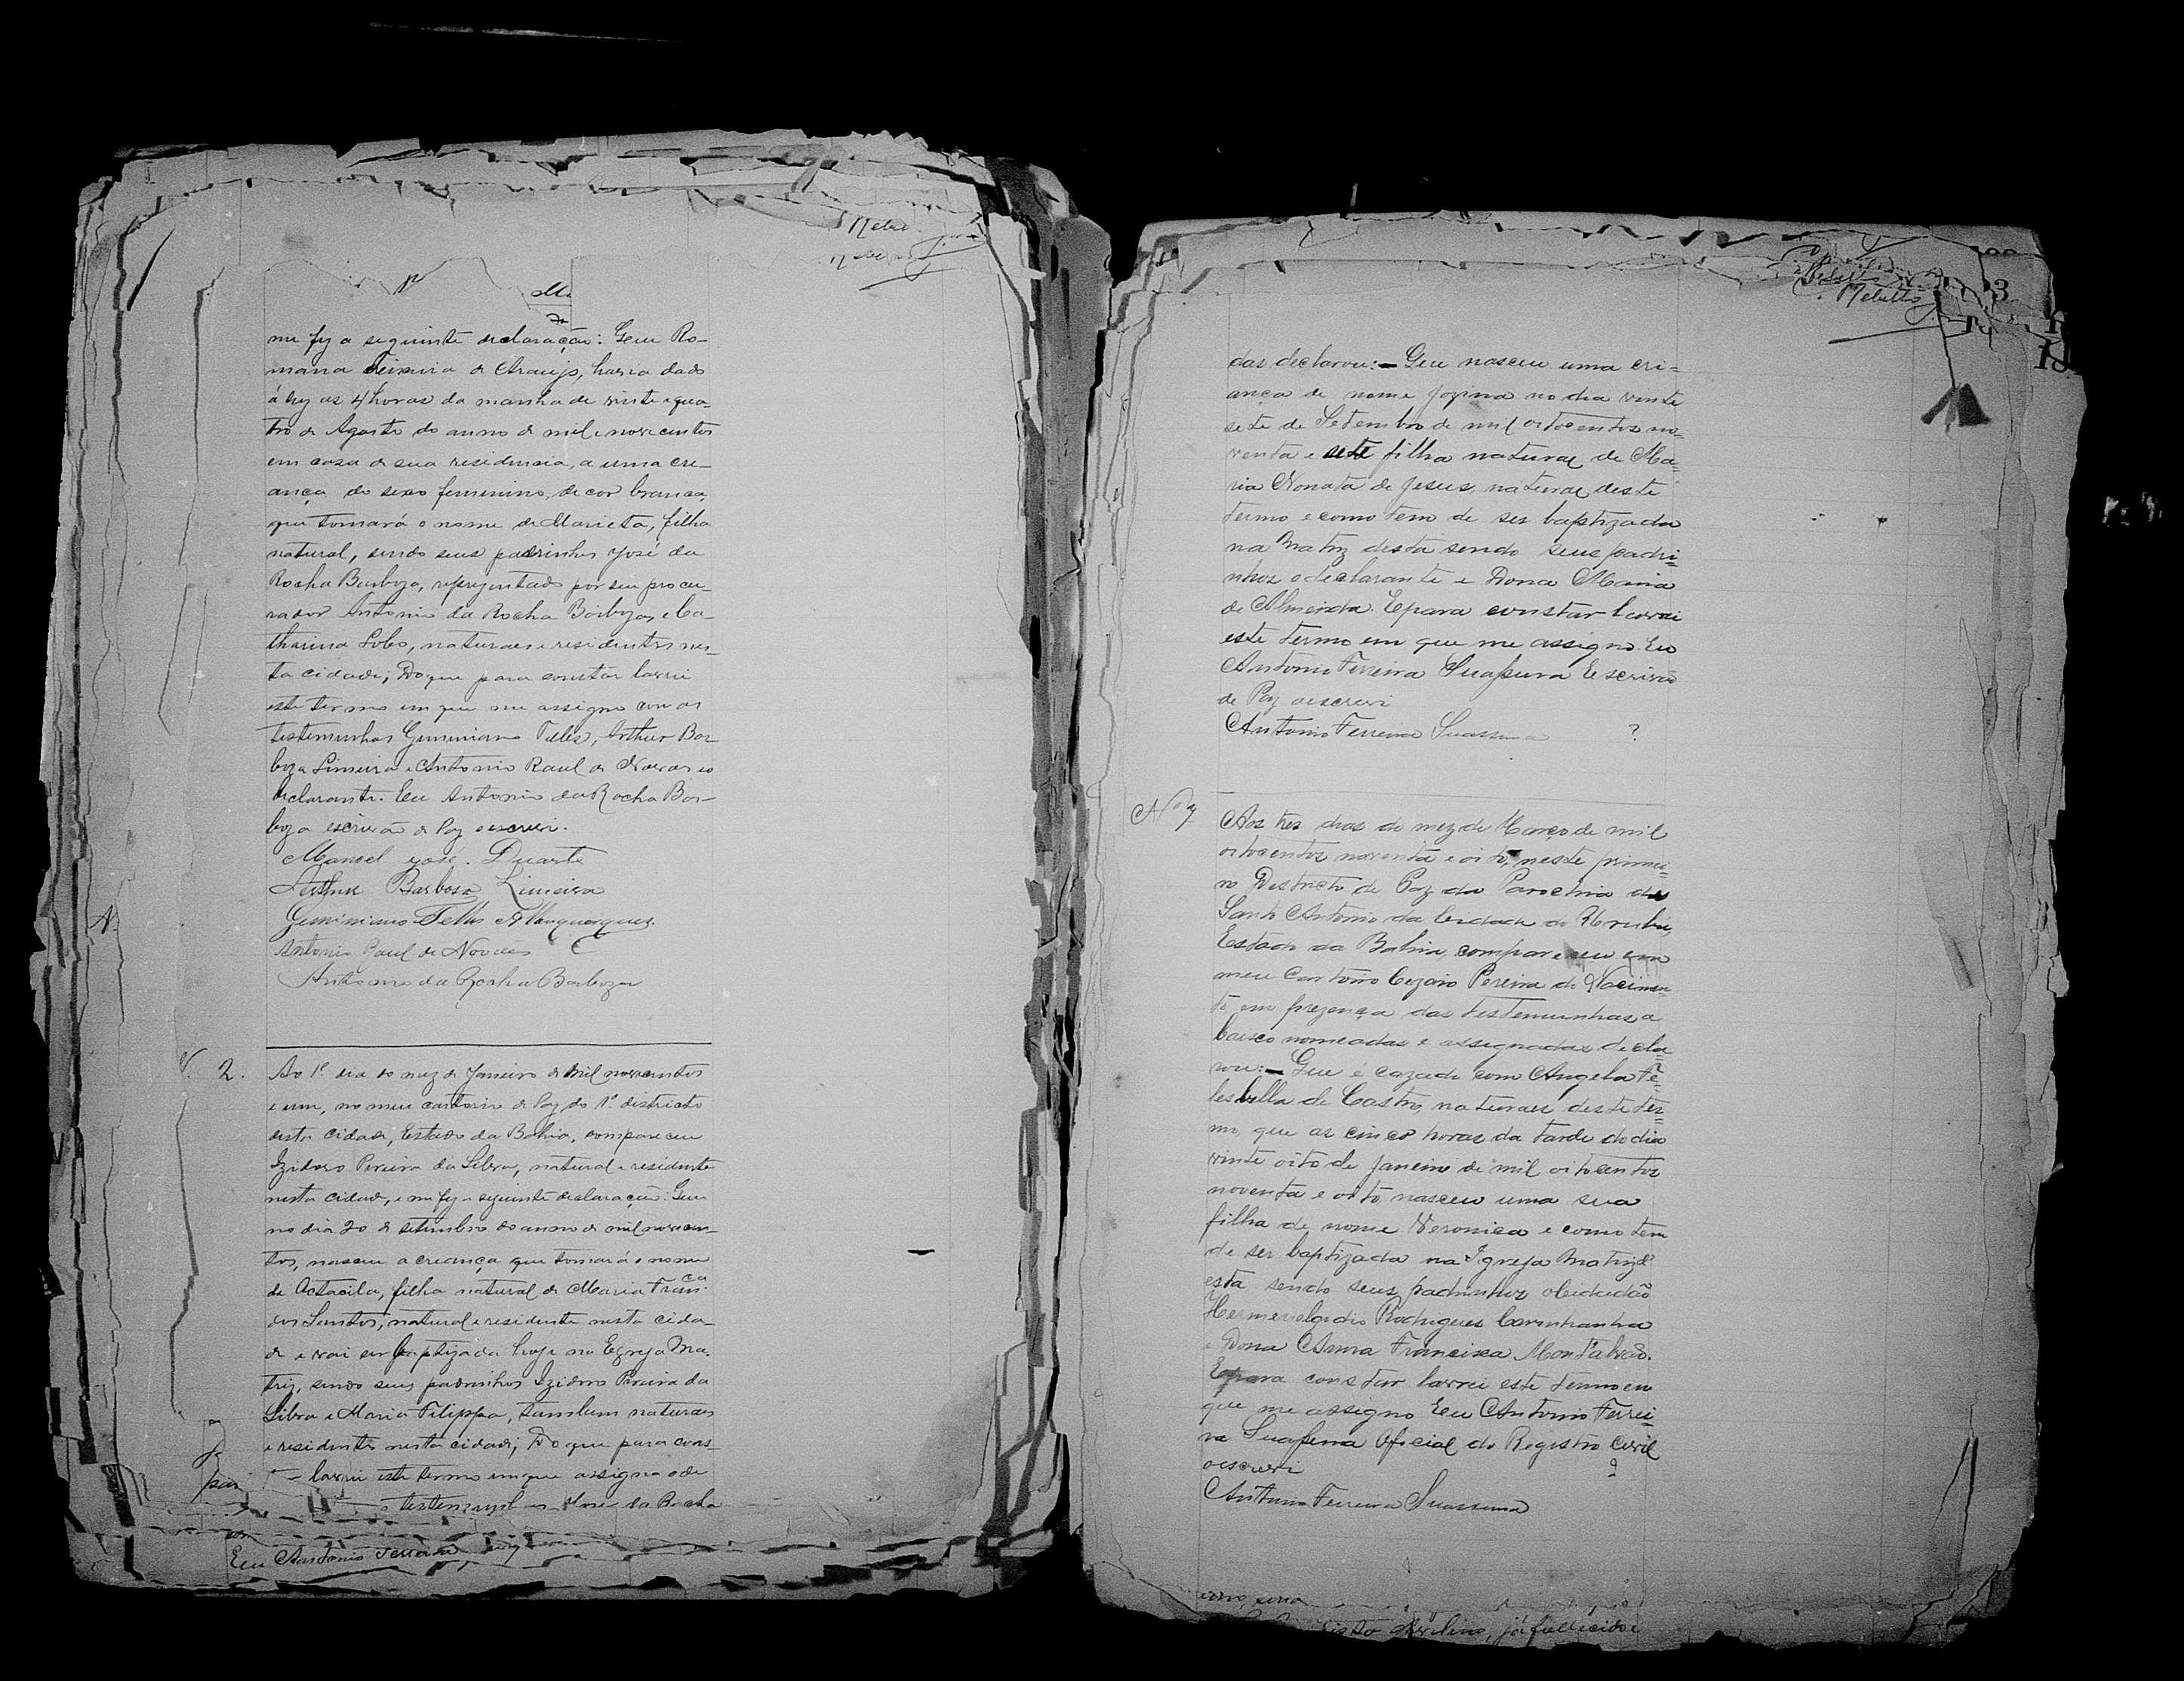 me fez a seguinte declaração: Que Ro-
mana Teixeira de Araujo, havia dado
á luz as 4 horas da manhã de vinte e qua-
tro de Agosto do anno de mil e novecentos
em caza de sua residencia, a uma cre-
ança do sexo feminino, de cor branca,
que tomará o nome de Marieta, filha
natural, sendo seus padrinhos José da
Rocha Barboza, representado por seu procu-
rador Antonio da Rocha Barboza, e Ca-
tharina Lobo, naturaes e residentes nes-
ta cidade; Do que para constar lavrei
este termo em que me assigno com as
testemunhas Geminiano Telles, Arthur Bar
boza Limeira e Antonio Raul de Novaes e o
declarante. Eu Antonio da Rocha Bar-
boza escrivão de Paz o escrevi.
Manoel José Duarte
Arthur Barbosa Limeira
Geminiano Telles Albuquerque
Antonio Raul de Novaes
Antonio da Rocha Barboza
2. Ao 1º dia do mez de Janeiro de mil novecentos
e um, no meu cartorio de Paz do 1º districto
desta cidade, Estado da Bahia, compareceu
Izidoro Pereira da Silva, natural e residente
nesta cidade, e me fez a seguinte declaração: Que
no dia 20 de setembro do anno de mil novecen-
tos, nasceu a creança que tomará o nome
de Actacila, filha natural de Maria Fran.ca
dos Santos, natural e residente nesta cida-
de e vai ser baptizada hoje na Egreja Ma-
triz, sendo seus padrinhos Izidoro Pereira da
Silva e Maria Filippa, tambem naturaes
e residentes nesta cidade; Do que para cons-
lavrei este termo em que assigna o de
testemunhas José da Rocha
Eu Antonio Ferreira
das declarou:- Que nasceu uma cri-
ança de nome Jozina no dia vinte
sete de Setembro de mil oitocentos no-
venta e sete filha natural de Ma-
ria Nonata de Jesus, natural deste
termo e como tem de ser baptizada
na Matriz desta sendo seus padri-
nhos o declarante e Dona Maria
de Almeida. E para constar lavrei
este termo em que me assigno. Eu
Antonio Ferreira Suassuna Escrivão
de Paz o escrevi
Antonio Ferreira Suassuna ?
Nº 7 Aos tres dias do mez de Março de mil
oitocentos noventa e oito, neste primei-
ro Districto de Paz da Parochia de
Santo Antonio da Cidade do Urubú,
Estado da Bahia, compareceu em
meu Cartorio Cezario Pereira do Nacimen-
to em prezença das testemunhas a
baixo nomeadas e assignadas decla-
rou:- Que é cazado com Angela Te-
lesbella de Castro, naturaes deste ter-
mo, que as cinco horas da tarde do dia
vinte oito de Janeiro de mil oitocentos
noventa e oito, nasceu uma sua
filha de nome Veronica e como tem
de ser baptizada na Igreja Matriz d'
esta sendo seus padrinhos o cidadão
Hermenelgidio Rodrigues Carinhanha
e Dona Anna Francisca Montalvão.
E para constar lavrei este termo em
que me assigno Eu Antonio Ferrei-
ra Suassuna Oficial do Registro Civil
o escrevi ?
Antonio Ferreira Suassuna
já fallecido e